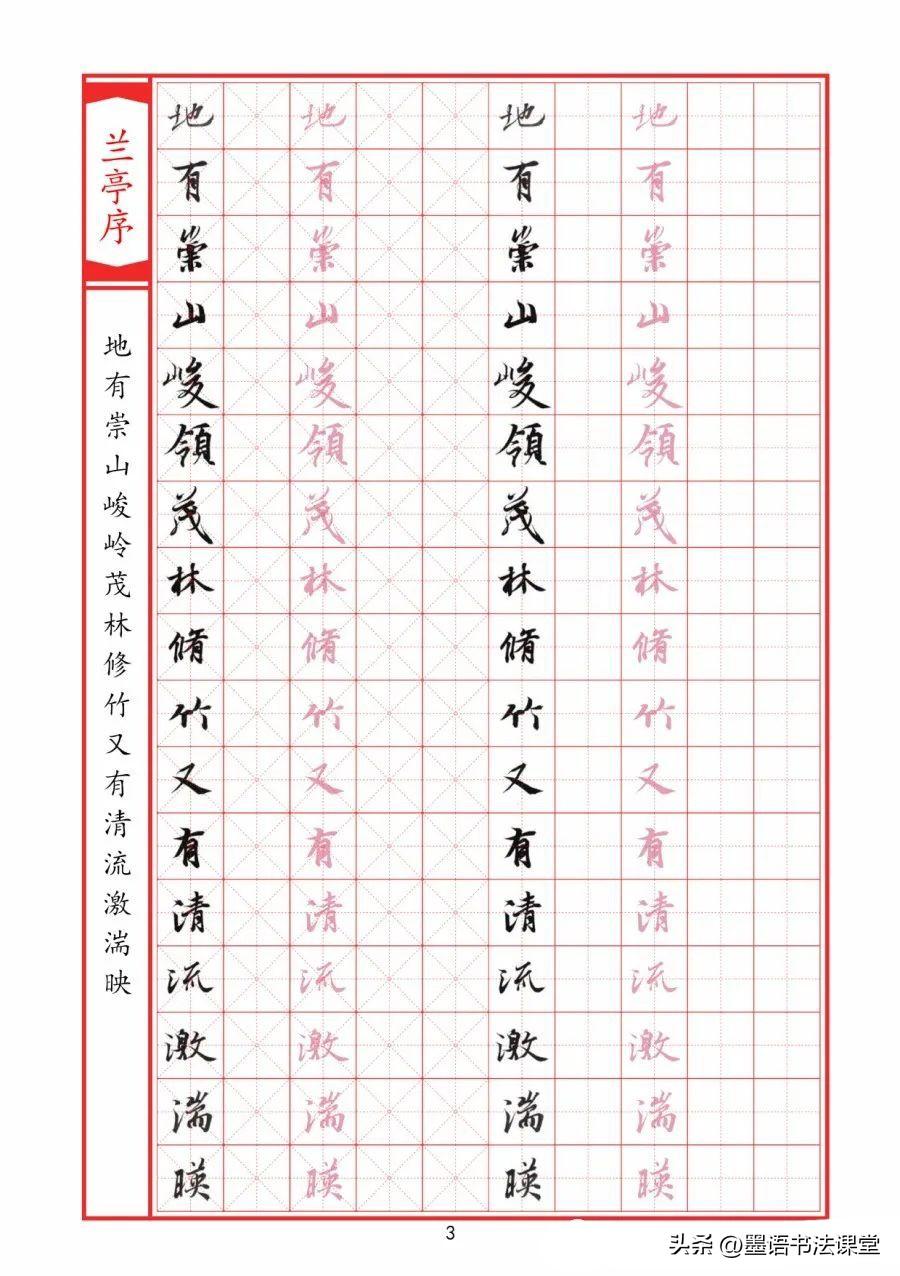 兰亭序
地有崇山峻岭茂林修竹又有清流激湍映
地有崇山峻領茂林脩竹又有清流激湍暎
地有崇山峻領茂林脩竹又有清流激湍暎
地有崇山峻領茂林脩竹又有清流激湍暎
地有崇山峻領茂林脩竹又有清流激湍暎
3
头条 @墨语书法课堂